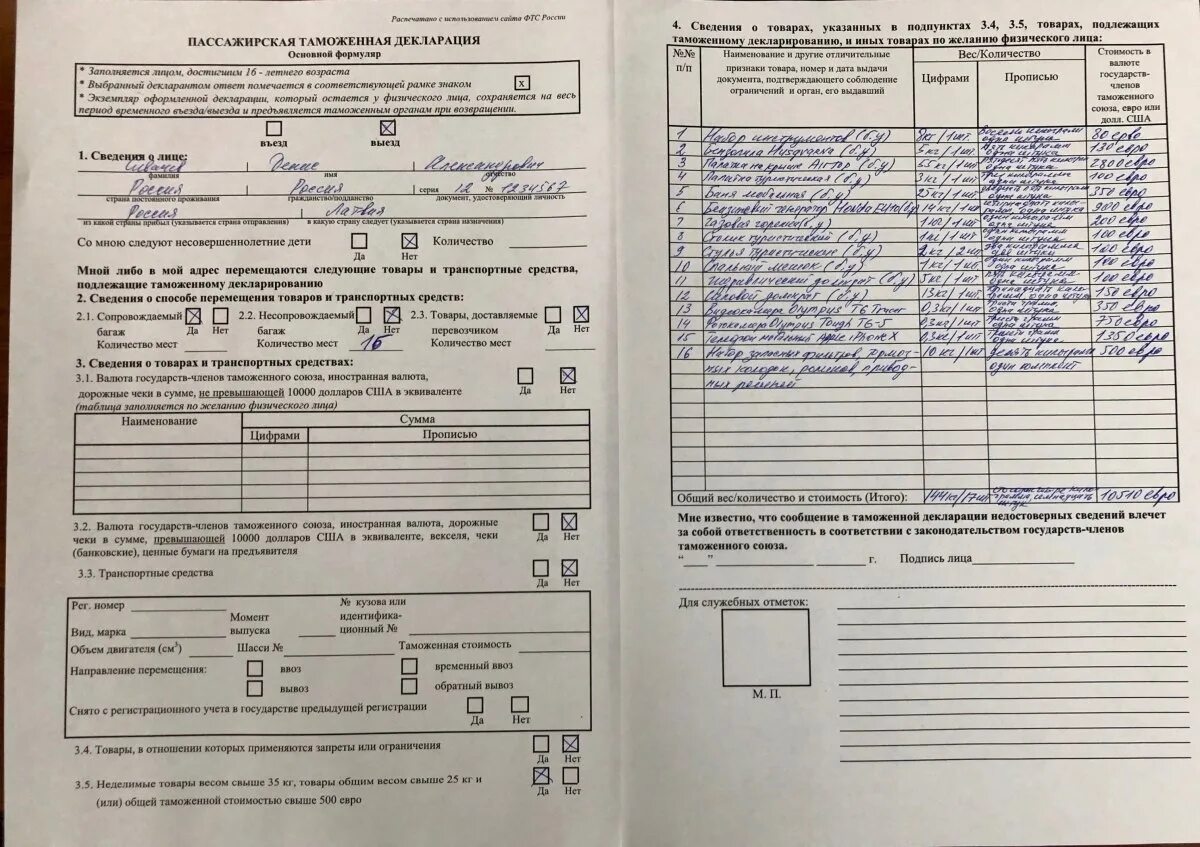 Распечатано с использованием сайта ФТС России
ПАССАЖИРСКАЯ ТАМОЖЕННАЯ ДЕКЛАРАЦИЯ
Основной формуляр
* Заполняется лицом, достигшим 16 - летнего возраста
* Выбранный декларантом ответ помечается в соответствующей рамке знаком x
* Экземпляр оформленной декларации, который остается у физического лица, сохраняется на весь
период временного въезда/выезда и предъявляется таможенным органам при возвращении.
въезд выезд
1. Сведения о лице:
Денис Александрович
фамилия имя отчество
Россия Россия серия 12 № 1234567
страна постоянного проживания гражданство/подданство документ, удостоверяющий личность
Россия Латвия
из какой страны прибыл (указывается страна отправления) в какую страну следует (указывается страна назначения)
Со мною следуют несовершеннолетние дети Количество
Да Нет
Мной либо в мой адрес перемещаются следующие товары и транспортные средства,
подлежащие таможенному декларированию
2. Сведения о способе перемещения товаров и транспортных средств:
2.1. Сопровождаемый 2.2. Несопровождаемый 2.3. Товары, доставляемые
багаж Да Нет багаж Да Нет перевозчиком Да Нет
Количество мест Количество мест 16 Количество мест
3. Сведения о товарах и транспортных средствах:
3.1. Валюта государств-членов таможенного союза, иностранная валюта,
дорожные чеки в сумме, не превышающей 10000 долларов США в эквиваленте Да Нет
(таблица заполняется по желанию физического лица)
Наименование Сумма
Цифрами Прописью
3.2. Валюта государств-членов таможенного союза, иностранная валюта, дорожные
чеки в сумме, превышающей 10000 долларов США в эквиваленте, векселя, чеки Да Нет
(банковские), ценные бумаги на предъявителя
3.3. Транспортные средства
Да Нет
Рег. номер № кузова или
Момент идентифика-
Вид, марка выпуска ционный №
Объем двигателя (см3) Шасси № Таможенная стоимость
Направление перемещения: ввоз временный ввоз
вывоз обратный вывоз
Снято с регистрационного учета в государстве предыдущей регистрации
Да Нет
3.4. Товары, в отношении которых применяются запреты или ограничения
Да Нет
3.5. Неделимые товары весом свыше 35 кг, товары общим весом свыше 25 кг и
(или) общей таможенной стоимостью свыше 500 евро Да Нет
4. Сведения о товарах, указанных в подпунктах 3.4, 3.5, товарах, подлежащих
таможенному декларированию, и иных товарах по желанию физического лица:
№№ п/п Наименование и другие отличительные признаки товара, номер и дата выдачи документа, подтверждающего соблюдение ограничений и орган, его выдавший Вес/Количество Стоимость в валюте государств-членов таможенного союза, евро или долл. США
Цифрами Прописью
1 Набор инструментов (б.у) 8кг/1шт. восемь килограмм одна штука 80 евро
2 Бензопила Husqvarna (б.у) 5 кг/1 шт. пять килограмм одна штука 130 евро
3 Палатка на крыше (б.у) 55 кг/1 шт 2800 евро
4 Палатка туристическая (б.у) 3 кг/1 шт. три килограмма одна штука 100 евро
5 Баня мобильная (б.у) 25кг/1шт. 350 евро
6 Бензиновый генератор Honda 14кг/1шт. 900 евро
7 Газовая горелка (б.у) 1кг/1шт. один килограмм одна штука 200 евро
8 Столик туристический (б.у) 1кг/1шт. один килограмм одна штука 100 евро
9 Стулья туристические (б.у) 2кг/2шт два килограмма две штуки 100 евро
10 Спальный мешок (б.у) 1кг/1шт. один килограмм одна штука 100 евро
11 Гидравлический домкрат (б.у) 5кг/1шт. пять килограмм одна штука 100 евро
12 домкрат (б.у) 13кг/1шт. тринадцать килограмм, одна штука 150 евро
13 Видеокамера Olympus T6 0,3кг/1шт. триста грамм одна штука 350 евро
14 Фотокамера Olympus Tough T6-5 0,3кг/1шт. триста грамм одна штука 750 евро
15 Телефон мобильный Apple iPhone X 0,3кг/1шт. триста грамм одна штука 1350 евро
16 Набор запасных фильтров, тормоз- 10 кг/1шт десять килограмм 500 евро
ных колодок, роликов, привод- один комплект
ных ремней
Общий вес/количество и стоимость (Итого): 144кг/17шт. сто сорок четыре килограмма, семнадцать штук 10510 евро
Мне известно, что сообщение в таможенной декларации недостоверных сведений влечет
за собой ответственность в соответствии с законодательством государств-членов
таможенного союза.
“___” г. Подпись лица
Для служебных отметок:
М. П.